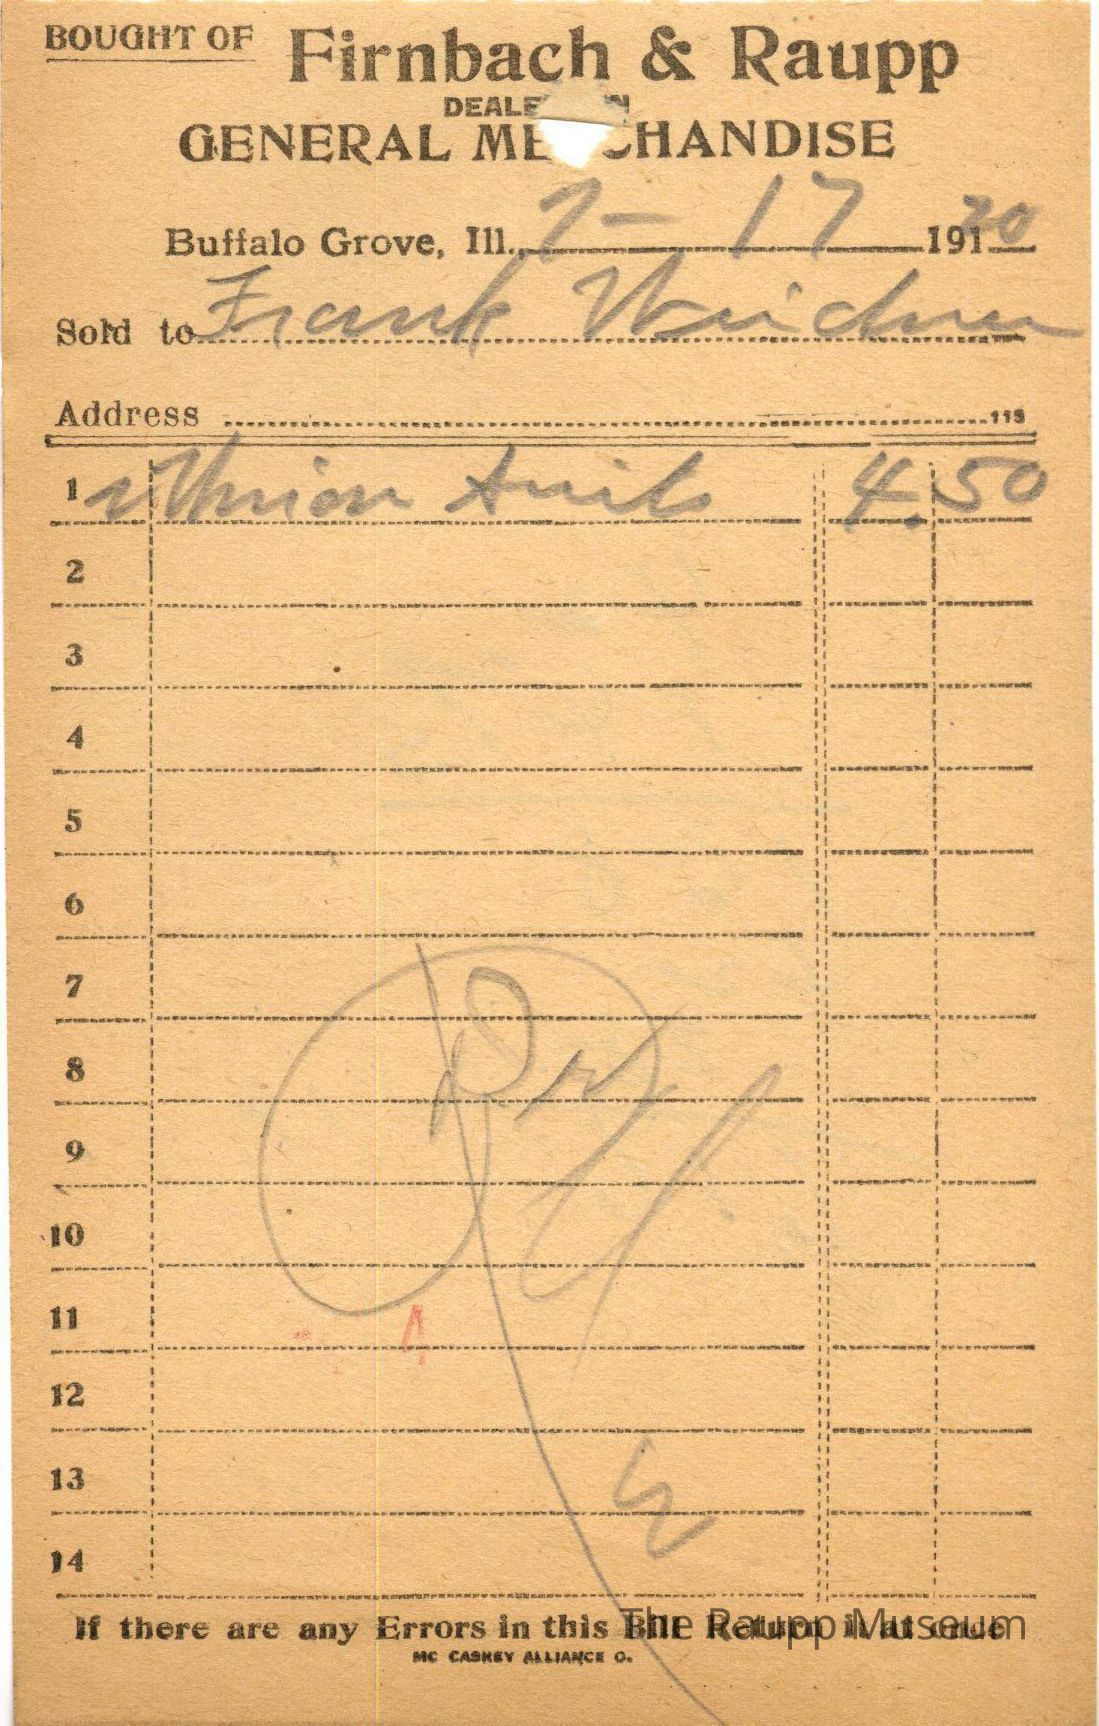 BOUGHT OF Firnbach & Raupp
DEALE N
GENERAL ME CHANDISE
Buffalo Grove, Ill., 2-17 191 20
Sold to Frank Weidner
Address 115
1 2 Union Suits 4.50
2
3
4
5
6
7
8
9
10
11
12
13
14
If there are any Errors in this Bill Return it at once
The Raupp Museum
MC CASKEY ALLIANCE O.